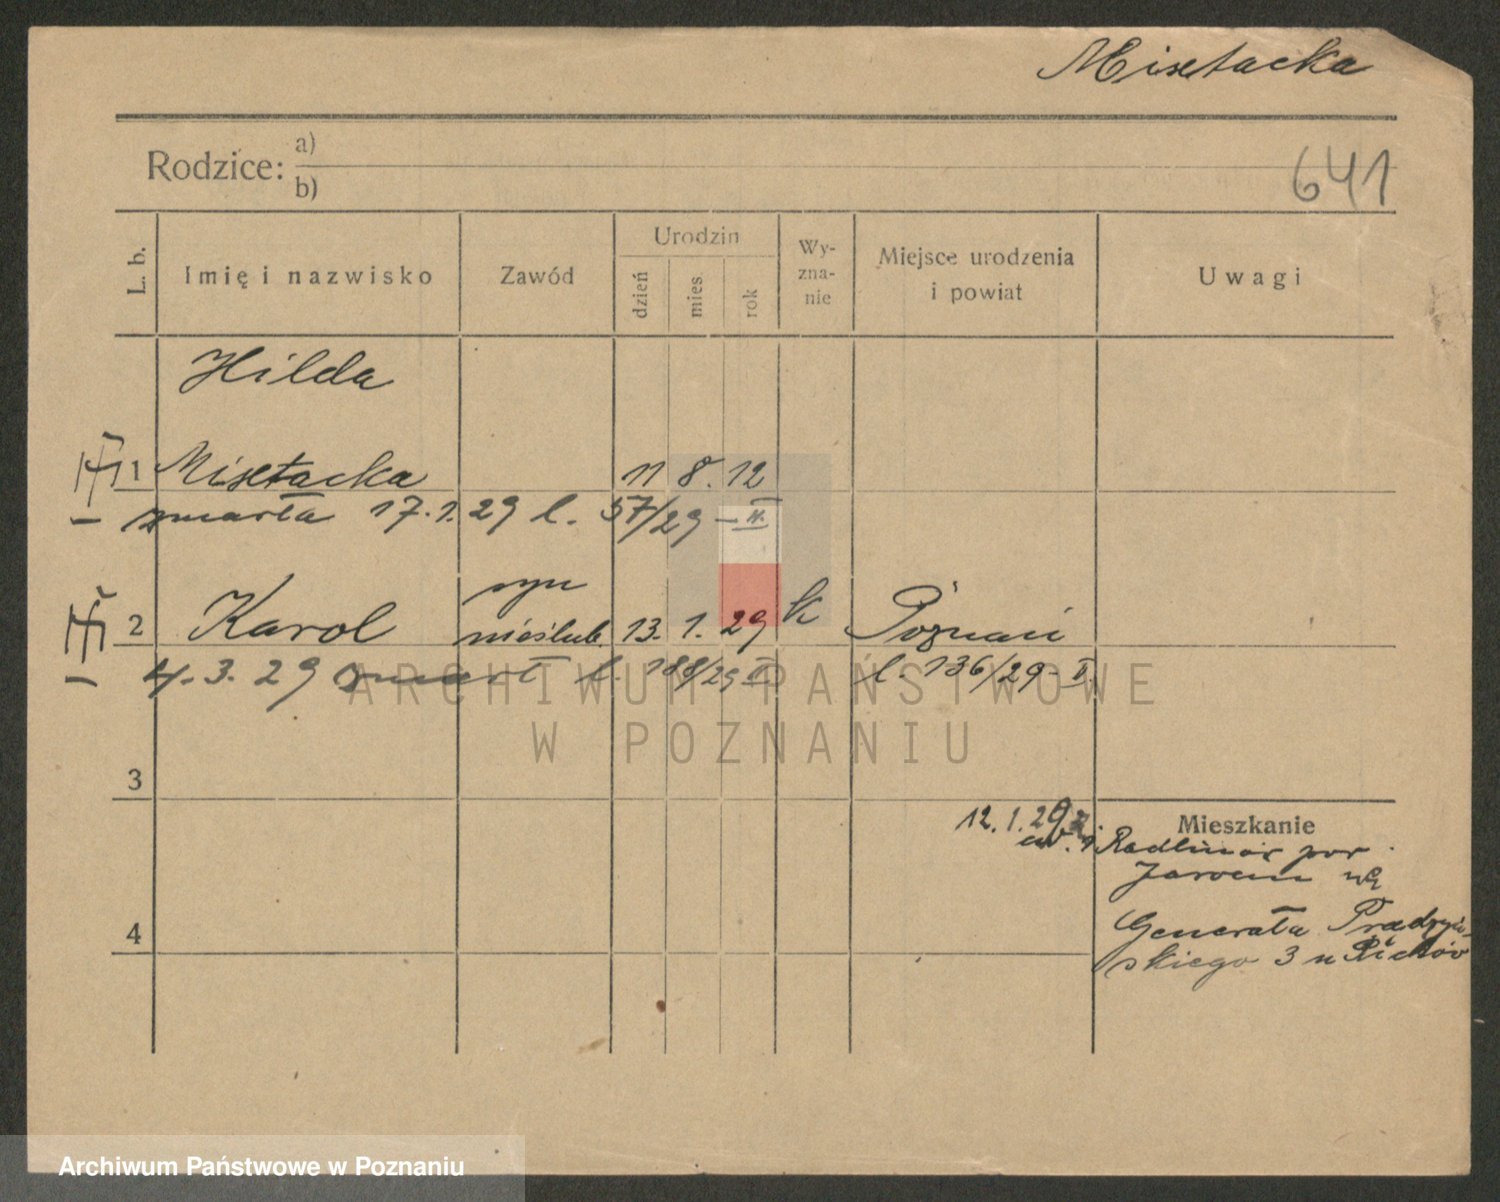 Misetacka
Rodzice: a)
b)
641
L. b.
Imię i nazwisko
Zawód
Urodzin
dzień
mies
rok
Wy-
zna-
nie
Miejsce urodzenia
i powiat
Uwagi
Hilda
1 Misetacka 11 8. 12
zmarła 17.1.29 l. 57/29 - II
syn
2 Karol nieślub. 13. 1. 29 k Poznań
4.3.29 zmarł l. 188/29 II l. 136/29 - II.
3
12.1.29 z
Mieszkanie
Radlin por
Jarocin
4
Generała Prądzyń-
skiego 3 u
ARCHIWUM PAŃSTWOWE
W POZNANIU
Archiwum Państwowe w Poznaniu